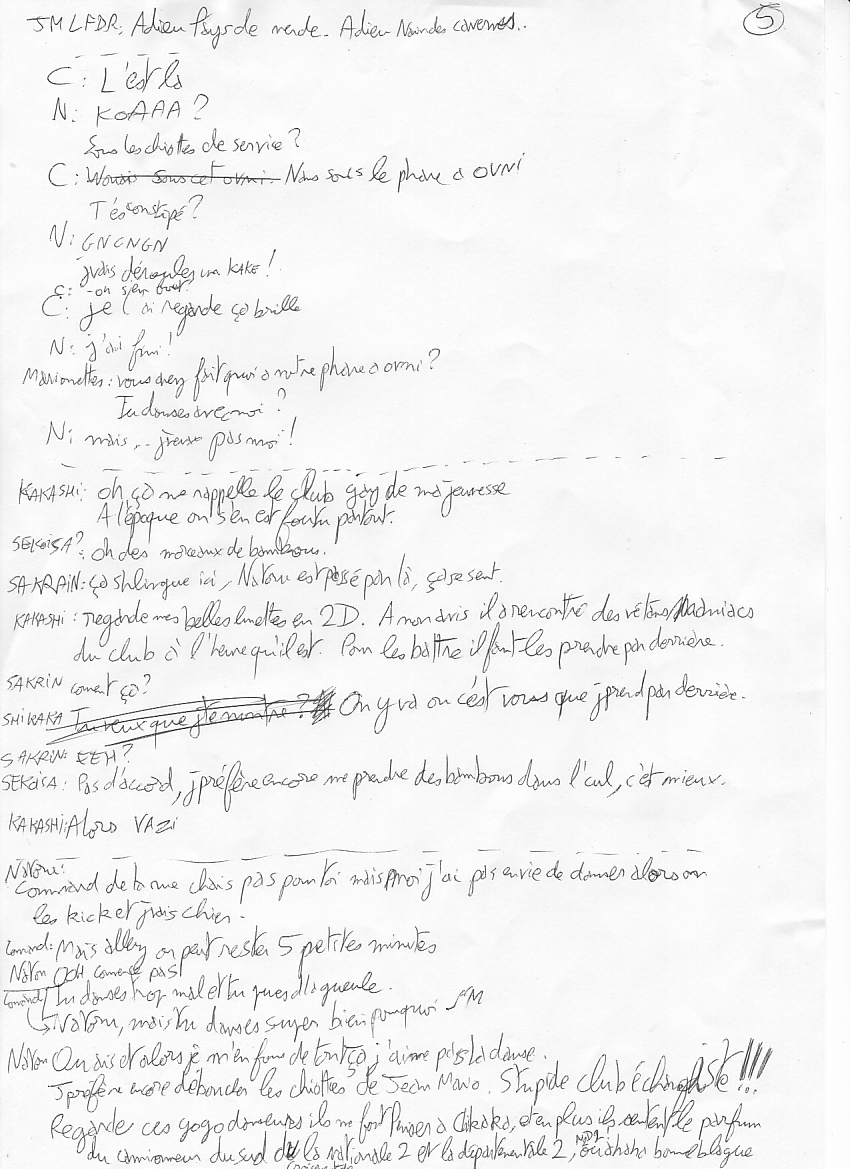 5
JMLFDR: Adieu Pays de merde. Adieu Nain des cavernes..
C: L'est là
N: KOAAA ?
Sous les chiottes de service ?
C: Wouais sous cet ovni. Nan sous le phare a OVNI
T'es constipé ?
N: GNGNGN
j'vais dérouler un KAKE !
C: - on s'en bat
C: je l'ai regarde ça brille
N: j'ai fini !
Marionettes : vous avez fait quoi a notre phare a ovni ?
Tu danses avec moi ?
N: mais... j'veux pas moi !
KAKASHI: oh ça me rappelle le club gay de ma jeunesse
A l'époque on s'en est foutu partout.
SEKOISA ? : oh des morceaux de bambous.
SAKRAIN: ça shlingue ici, Natoru est passé par là, ça se sent.
KAKASHI : regarde mes belles lunettes en 2D. A mon avis il a rencontré des
du club à l'heure qu'il est. Pour les battre il faut les prendre par derrière.
SAKRIN coment ça ?
SHIKAKA Tu veux que j'te montre ? On y va ou c'est vous que j'prend par derrière.
SAKRIN: EEH ?
SEKOISA : Pas d'accord, j'préfère encore me prendre des bambous dans l'cul, c'est mieux.
KAKASHI: Alors VAZI
Natoru:
Command de la rue chais pas pour toi mais moi j'ai pas envie de danser alors on
les kick et j'vais chier.
Comand: Mais allez on peut rester 5 petites minutes
Natoru OOH comence pas
Comand Tu danses trop mal et tu pues d'la gueule.
Natoru, mais tu danses super bien pourquoi
Natoru Ouais et alors je m'en fous de tout ça j'aime pas la danse.
J'préfère encore déboucher les chiottes de Jean Mario. Stupide club échangiste !!!
Regarde ces gogo danseurs ils me font penser a Chikaka, et en plus ils sentent le parfum
du camionneur du sud de la nationale 2 et la départementale 2, ouahaha bonne blague